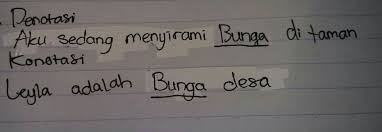 . Denotasi
Aku sedang menyirami Bunga di taman
Konotasi
Leyla adalah Bunga desa